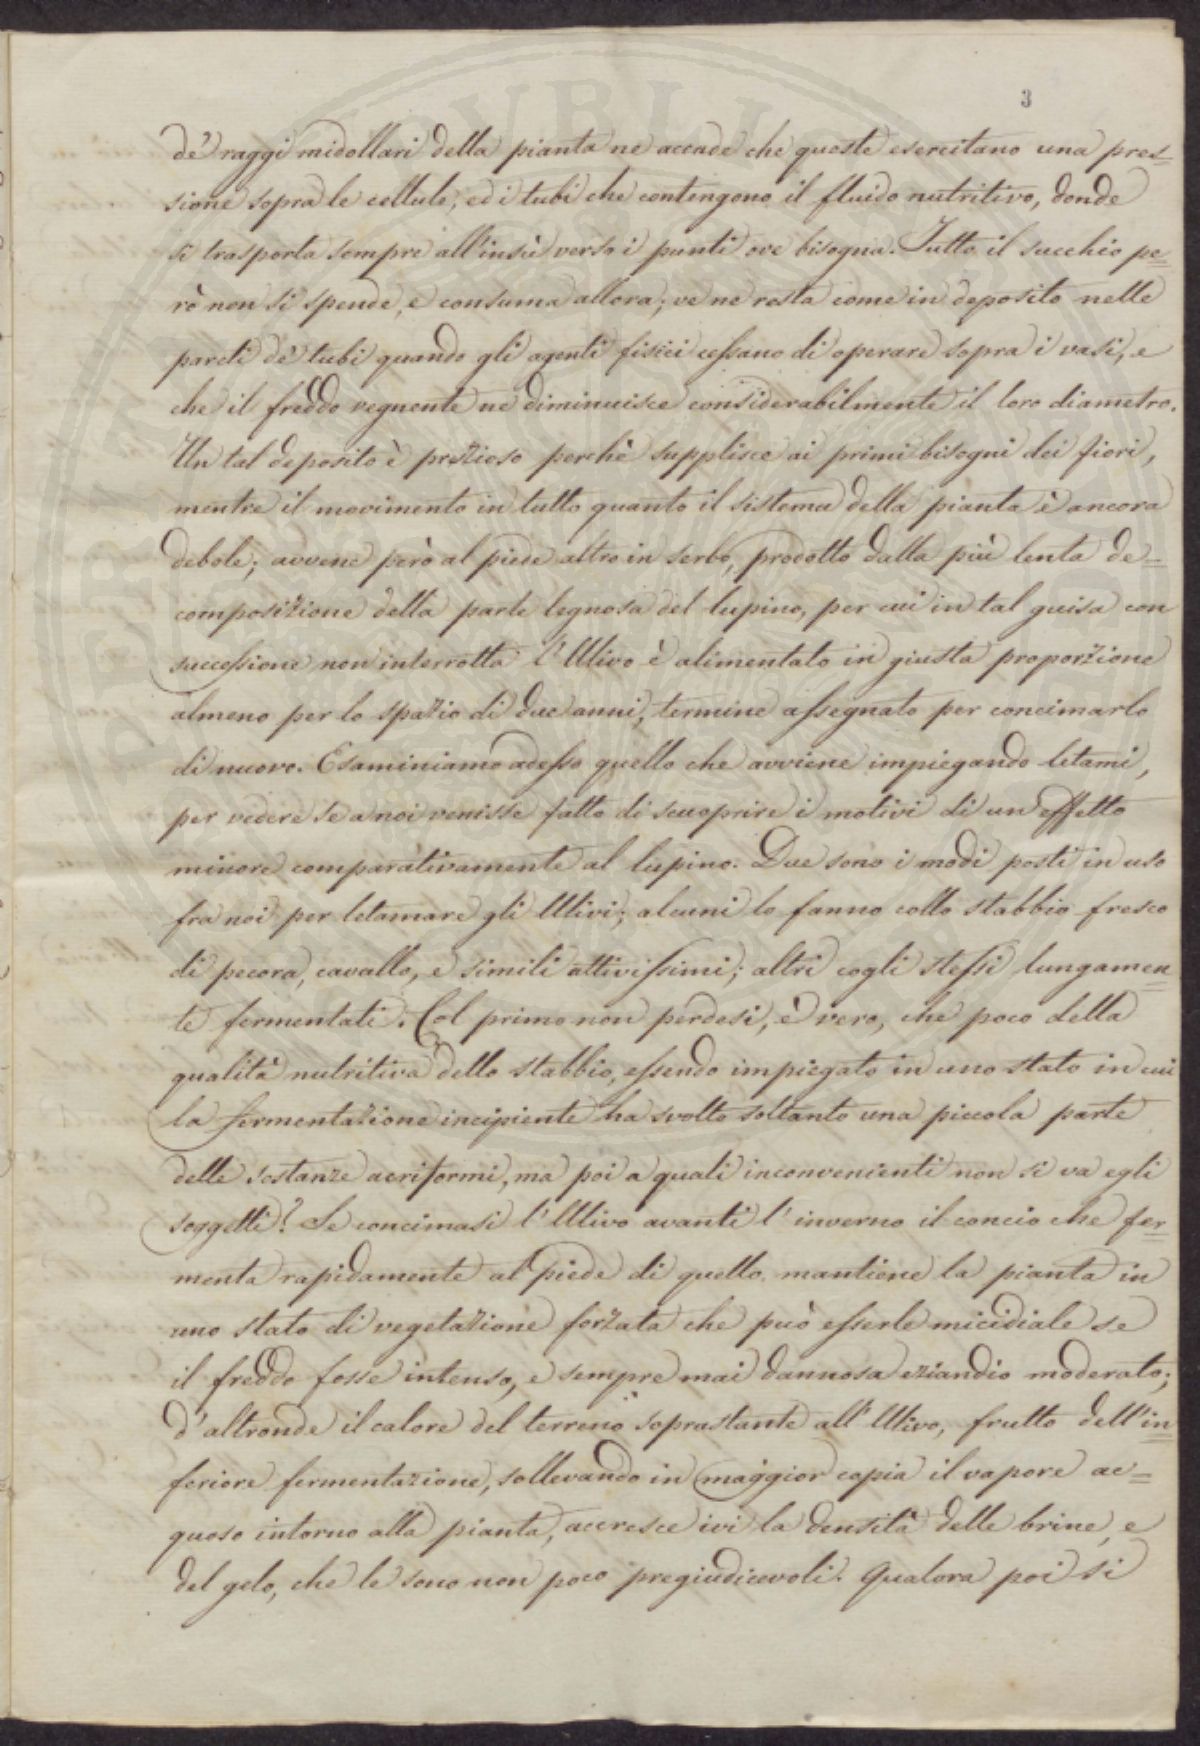 3
de' raggi midollari della pianta ne accade che queste esercitano una pres=
sione sopra le cellule, ed i tubi che contengono il fluido nutritivo, donde
si trasporta sempre all'insù verso i punti ove bisogna. Tutto il succhio pe=
rò non si spende, e consuma allora; ve ne resta come in deposito nelle
pareti de' tubi quando gli agenti fisici cessano di operare sopra i vasi, e
che il freddo vegnente ne diminuisce considerabilmente il loro diametro.
Un tal deposito è prezioso perchè supplisce ai primi bisogni dei fiori,
mentre il movimento in tutto quanto il sistema della pianta è ancora
debole; avvene però al piede altro in serbo, prodotto dalla più lenta de=
composizione della parte legnosa del lupino, per cui in tal guisa con
successione non interrotta l'Ulivo è alimentato in giusta proporzione
almeno per lo spazio di due anni, termine assegnato per concimarlo
di nuovo. Esaminiamo adesso quello che avviene impiegando letami,
per vedere se a noi venisse fatto di scuoprire i motivi di un effetto
minore comparativamente al lupino. Due sono i modi posti in uso
fra noi per letamare gli Ulivi; alcuni lo fanno collo stabbio fresco
di pecora, cavallo, e simili attivissimi; altri cogli stessi lungamen=
te fermentati. Col primo non perdesi, è vero, che poco della
qualità nutritiva dello stabbio, essendo impiegato in uno stato in cui
la fermentazione incipiente ha svolto soltanto una piccola parte
delle sostanze aeriformi, ma poi a quali inconvenienti non si va egli
soggetti? Se concimasi l'Ulivo avanti l'inverno il concio che fer=
menta rapidamente al piede di quello mantiene la pianta in
uno stato di vegetazione forzata che può esserle micidiale se
il freddo fosse intenso, e sempre mai dannosa eziandio moderato;
d'altronde il calore del terreno soprastante all'Ulivo, frutto dell'in=
feriore fermentazione, sollevando in maggior copia il vapore ac=
quoso intorno alla pianta, accresce ivi la densità delle brine, e
del gelo, che le sono non poco pregiudicevoli. Qualora poi si